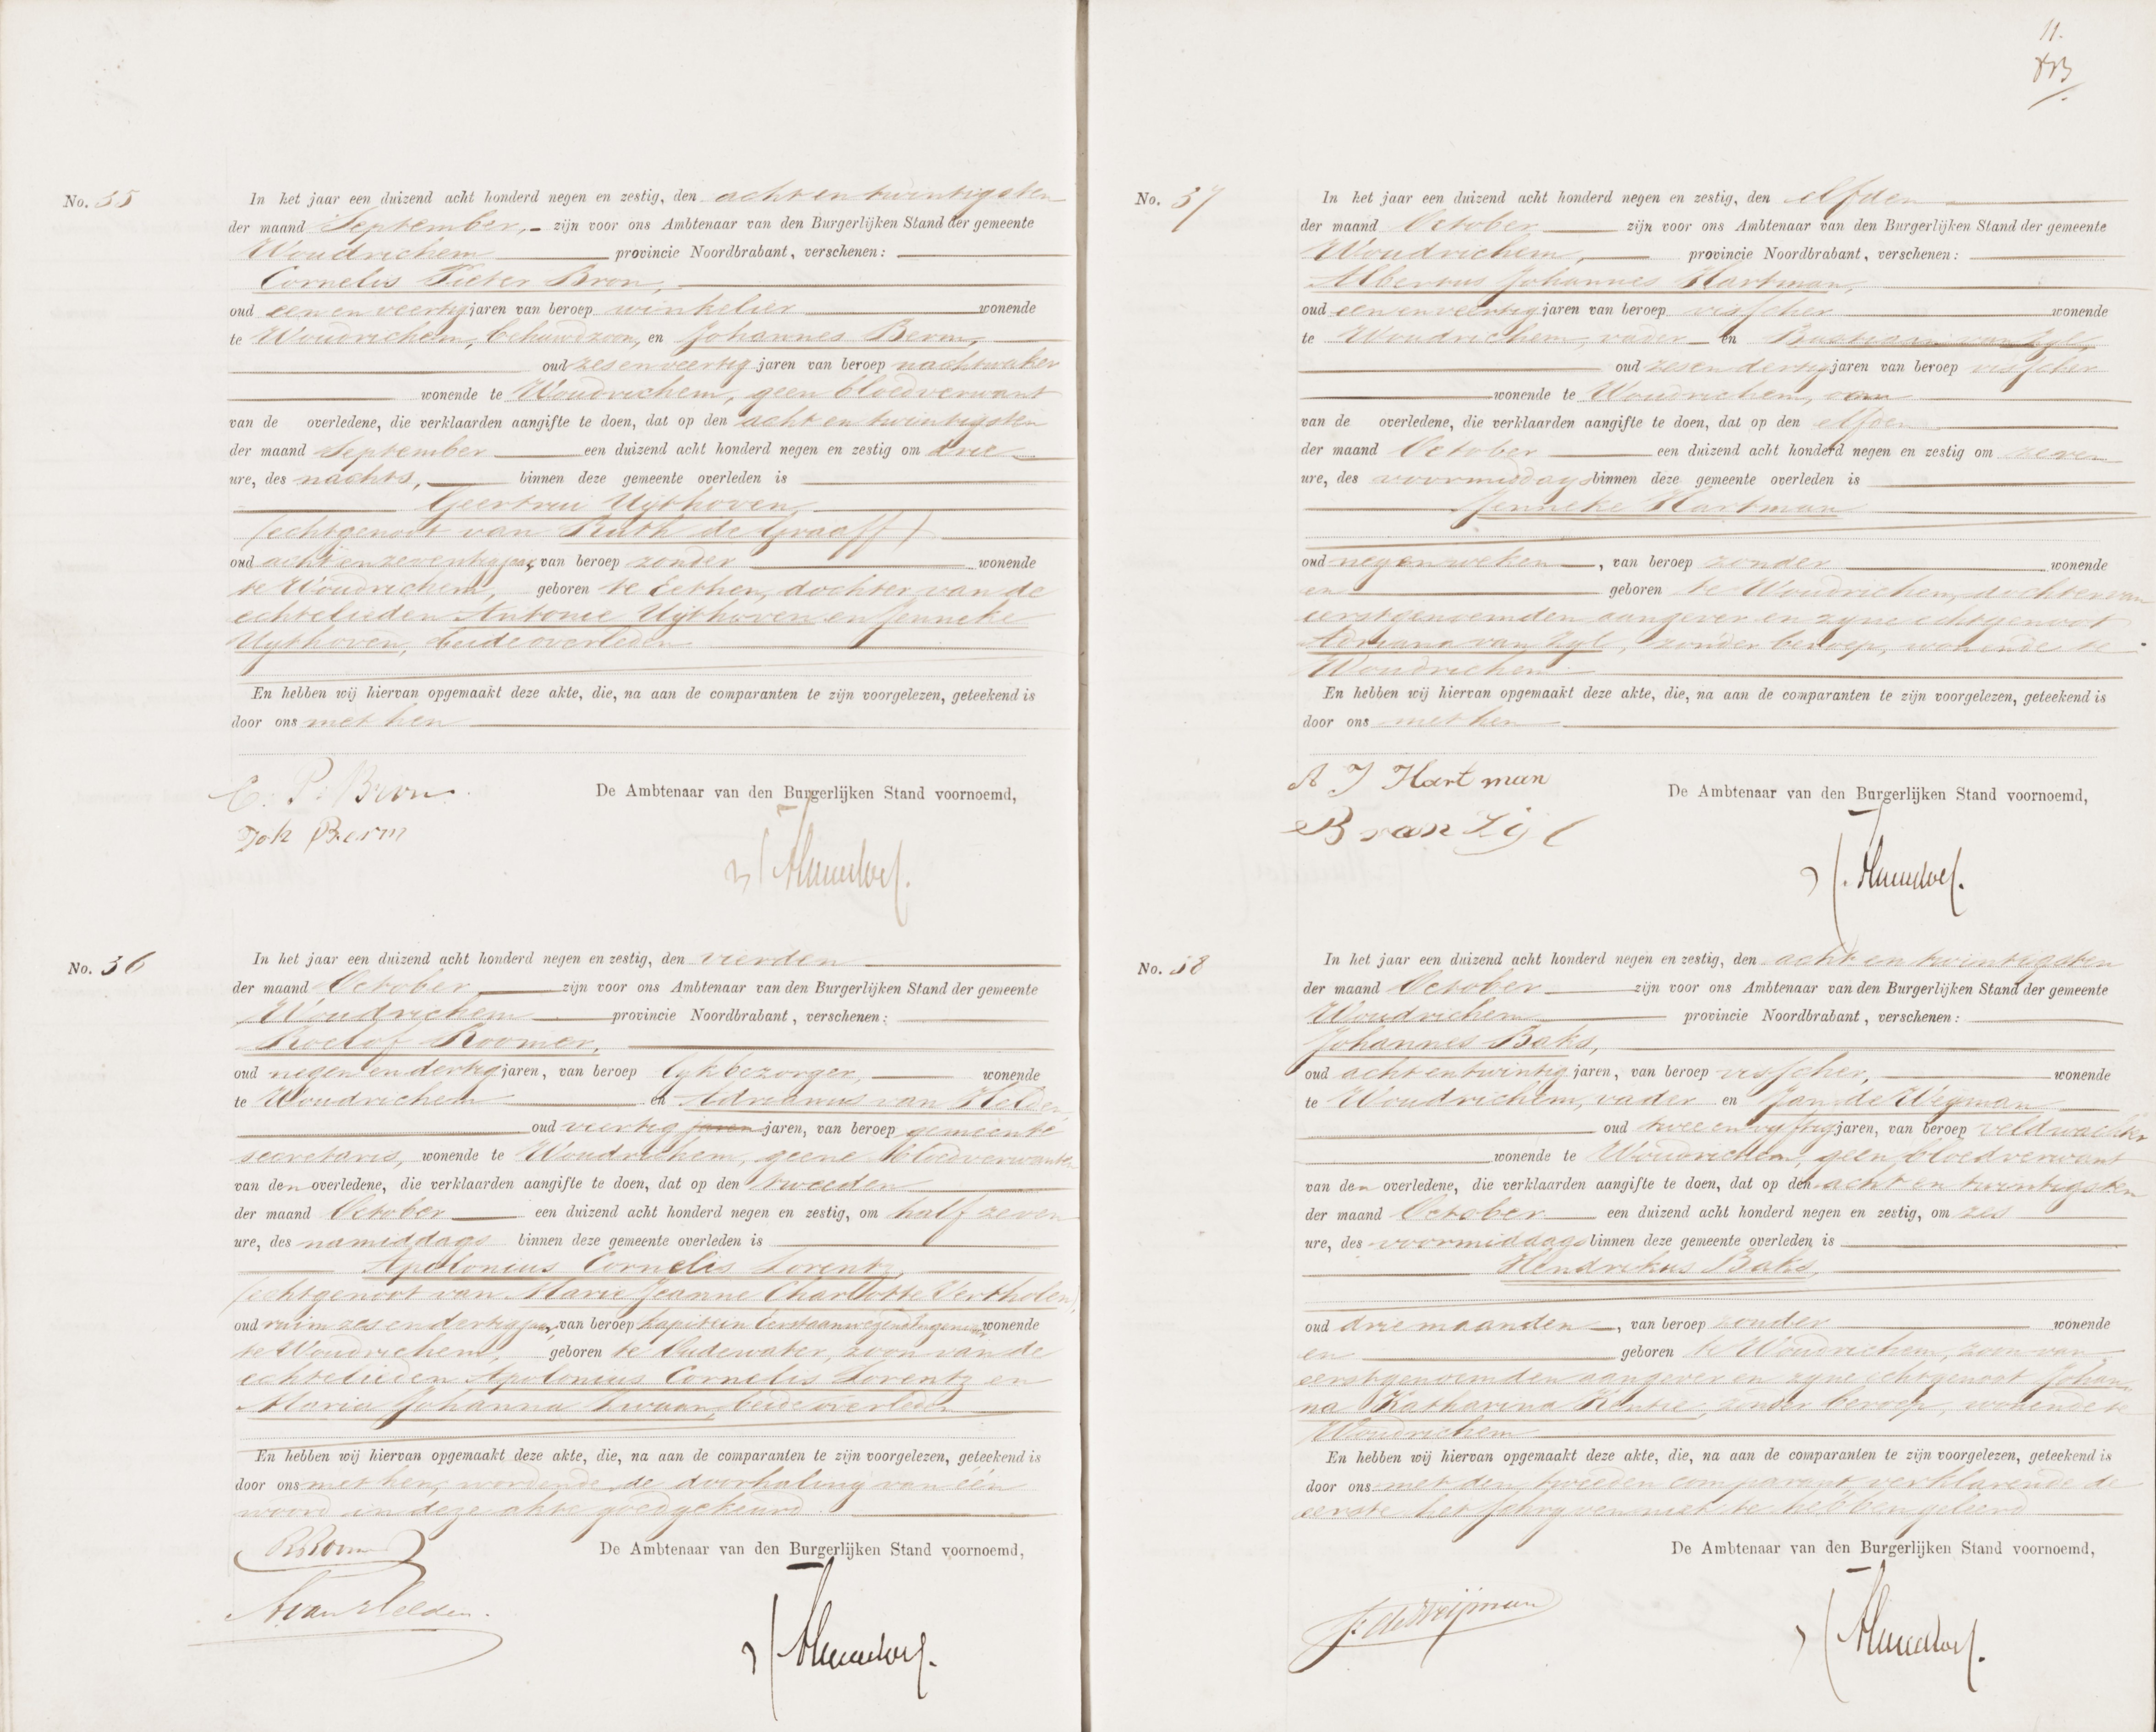 No. 35
In het jaar een duizend acht honderd negen en zestig, den acht en twintigsten
der maand September, zijn voor ons Ambtenaar van den Burgerlijken Stand der gemeente
Woudrichem provincie Noordbrabant, verschenen:
Cornelis Pieter Bron,
oud een en veertig jaren van beroep winkelier wonende
te Woudrichem, behuwdzoon, en Johannes Berm,
oud zes en veertig jaren van beroep nachtwaker
wonende te Woudrichem, geen bloedverwant
van de overledene, die verklaarden aangifte te doen, dat op den acht en twintigsten
der maand September een duizend acht honderd negen en zestig om drie
ure, des nachts, binnen deze gemeente overleden is
Geertrui Uijthoven,
(echtgenoot van Ruth de Graaff)
oud acht en zeventig jaar, van beroep zonder wonende
te Woudrichem, geboren te Eethen, dochter van de
echtelieden Antonie Uijthoven en Jenneke
Uijthoven, beide overleden
En hebben wij hiervan opgemaakt deze akte, die, na aan de comparanten te zijn voorgelezen, geteekend is
door ons met hen
De Ambtenaar van den Burgerlijken Stand voornoemd,
C. P. Bron.
Joh Berm
No. 36
In het jaar een duizend acht honderd negen en zestig, den vierden
der maand October zijn voor ons Ambtenaar van den Burgerlijken Stand der gemeente
Woudrichem provincie Noordbrabant, verschenen:
Roelof Roomer,
oud negen en dertig jaren, van beroep lijkbezorger, wonende
te Woudrichem en Adrianus van Helden
oud veertig jaren jaren, van beroep gemeente
secretaris, wonende te Woudrichem, geene bloedverwanten
van den overledene, die verklaarden aangifte te doen, dat op den tweeden
der maand October een duizend acht honderd negen en zestig, om half zeven
ure, des namiddags binnen deze gemeente overleden is
Apolonius Cornelis Lorentz,
(echtgenoot van Marie Jeanne Charlotte Vertholen)
oud ruim zes en dertig jaar, van beroep kapitein Eerstaanwezend Ingenieur wonende
te Woudrichem, geboren te Oudewater, zoon van de
echtelieden Apolonius Cornelis Lorentz en
Maria Johanna Zwaan, beide overleden
En hebben wij hiervan opgemaakt deze akte, die, na aan de comparanten te zijn voorgelezen, geteekend is
door ons met hen, wordende de doorhaling van één
woord in deze akte goedgekeurd
De Ambtenaar van den Burgerlijken Stand voornoemd,
A van Helden.
11.
No. 37
In het jaar een duizend acht honderd negen en zestig, den elfden
der maand October zijn voor ons Ambtenaar van den Burgerlijken Stand der gemeente
Woudrichem, provincie Noordbrabant, verschenen:
Albertus Johannes Hartman,
oud een en veertig jaren van beroep visscher wonende
te Woudrichem, vader en Bastiaan van Zyl,
oud zes en dertig jaren van beroep visscher
wonende te Woudrichem, oom
van de overledene, die verklaarden aangifte te doen, dat op den elfden
der maand October een duizend acht honderd negen en zestig om zeven
ure, des voormiddags binnen deze gemeente overleden is
Jenneke Hartman
oud negen weken, van beroep zonder wonende
en geboren te Woudrichem, dochter van
eerstgenoemden aangever en zyne echtgenoot
Adriana van Zyl, zonder beroep, wonende te
Woudrichem
En hebben wij hiervan opgemaakt deze akte, die, na aan de comparanten te zijn voorgelezen, geteekend is
door ons met hen
De Ambtenaar van den Burgerlijken Stand voornoemd,
A J Hartman
B van Zijl
No. 38
In het jaar een duizend acht honderd negen en zestig, den acht en twintigsten
der maand October zijn voor ons Ambtenaar van den Burgerlijken Stand der gemeente
Woudrichem provincie Noordbrabant, verschenen:
Johannes Baks,
oud acht en twintig jaren, van beroep visscher, wonende
te Woudrichem, vader en Jan de Weyman
oud twee en vyftig jaren, van beroep veldwachter
wonende te Woudrichem, geen bloedverwant
van den overledene, die verklaarden aangifte te doen, dat op den acht en twintigsten
der maand October een duizend acht honderd negen en zestig, om zes
ure, des voormiddags binnen deze gemeente overleden is
Hendrikus Baks,
oud drie maanden, van beroep zonder wonende
en geboren te Woudrichem, zoon van
eerstgenoemden aangever en zyne echtgenoot Johan
na Katharina Kentie, zonder beroep, wonende te
Woudrichem
En hebben wij hiervan opgemaakt deze akte, die, na aan de comparanten te zijn voorgelezen, geteekend is
door ons met den tweeden comparant verklarende de
eerste het schryven niet te hebben geleerd
De Ambtenaar van den Burgerlijken Stand voornoemd,